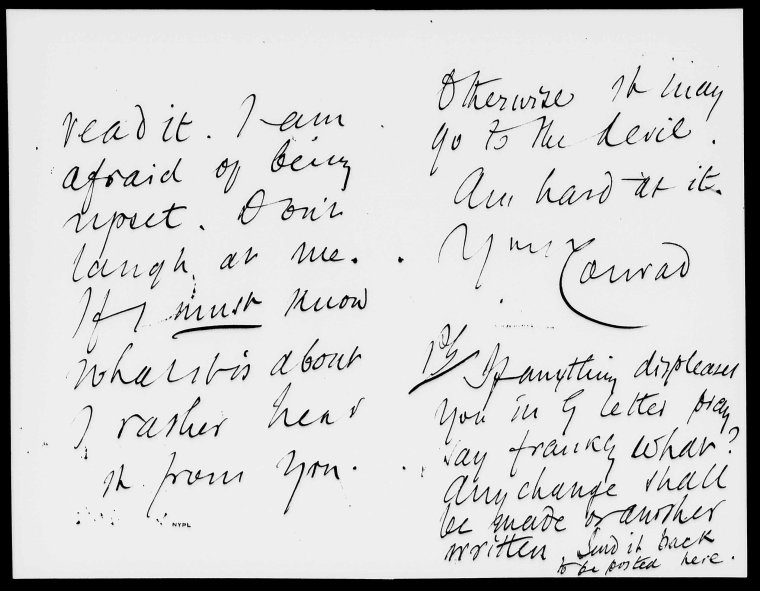 read it. I am
afraid of being
upset. Don't
laugh at me.
If I must know
what it is about
I rather hear
it from you.
NYPL
Otherwise it may
go to the devil.
Am hard at it.
Yours
Conrad
PS If anything displeases
you in G letter pray
say frankly what?
Any change shall
be made or another
written. Send it back
to be posted here.